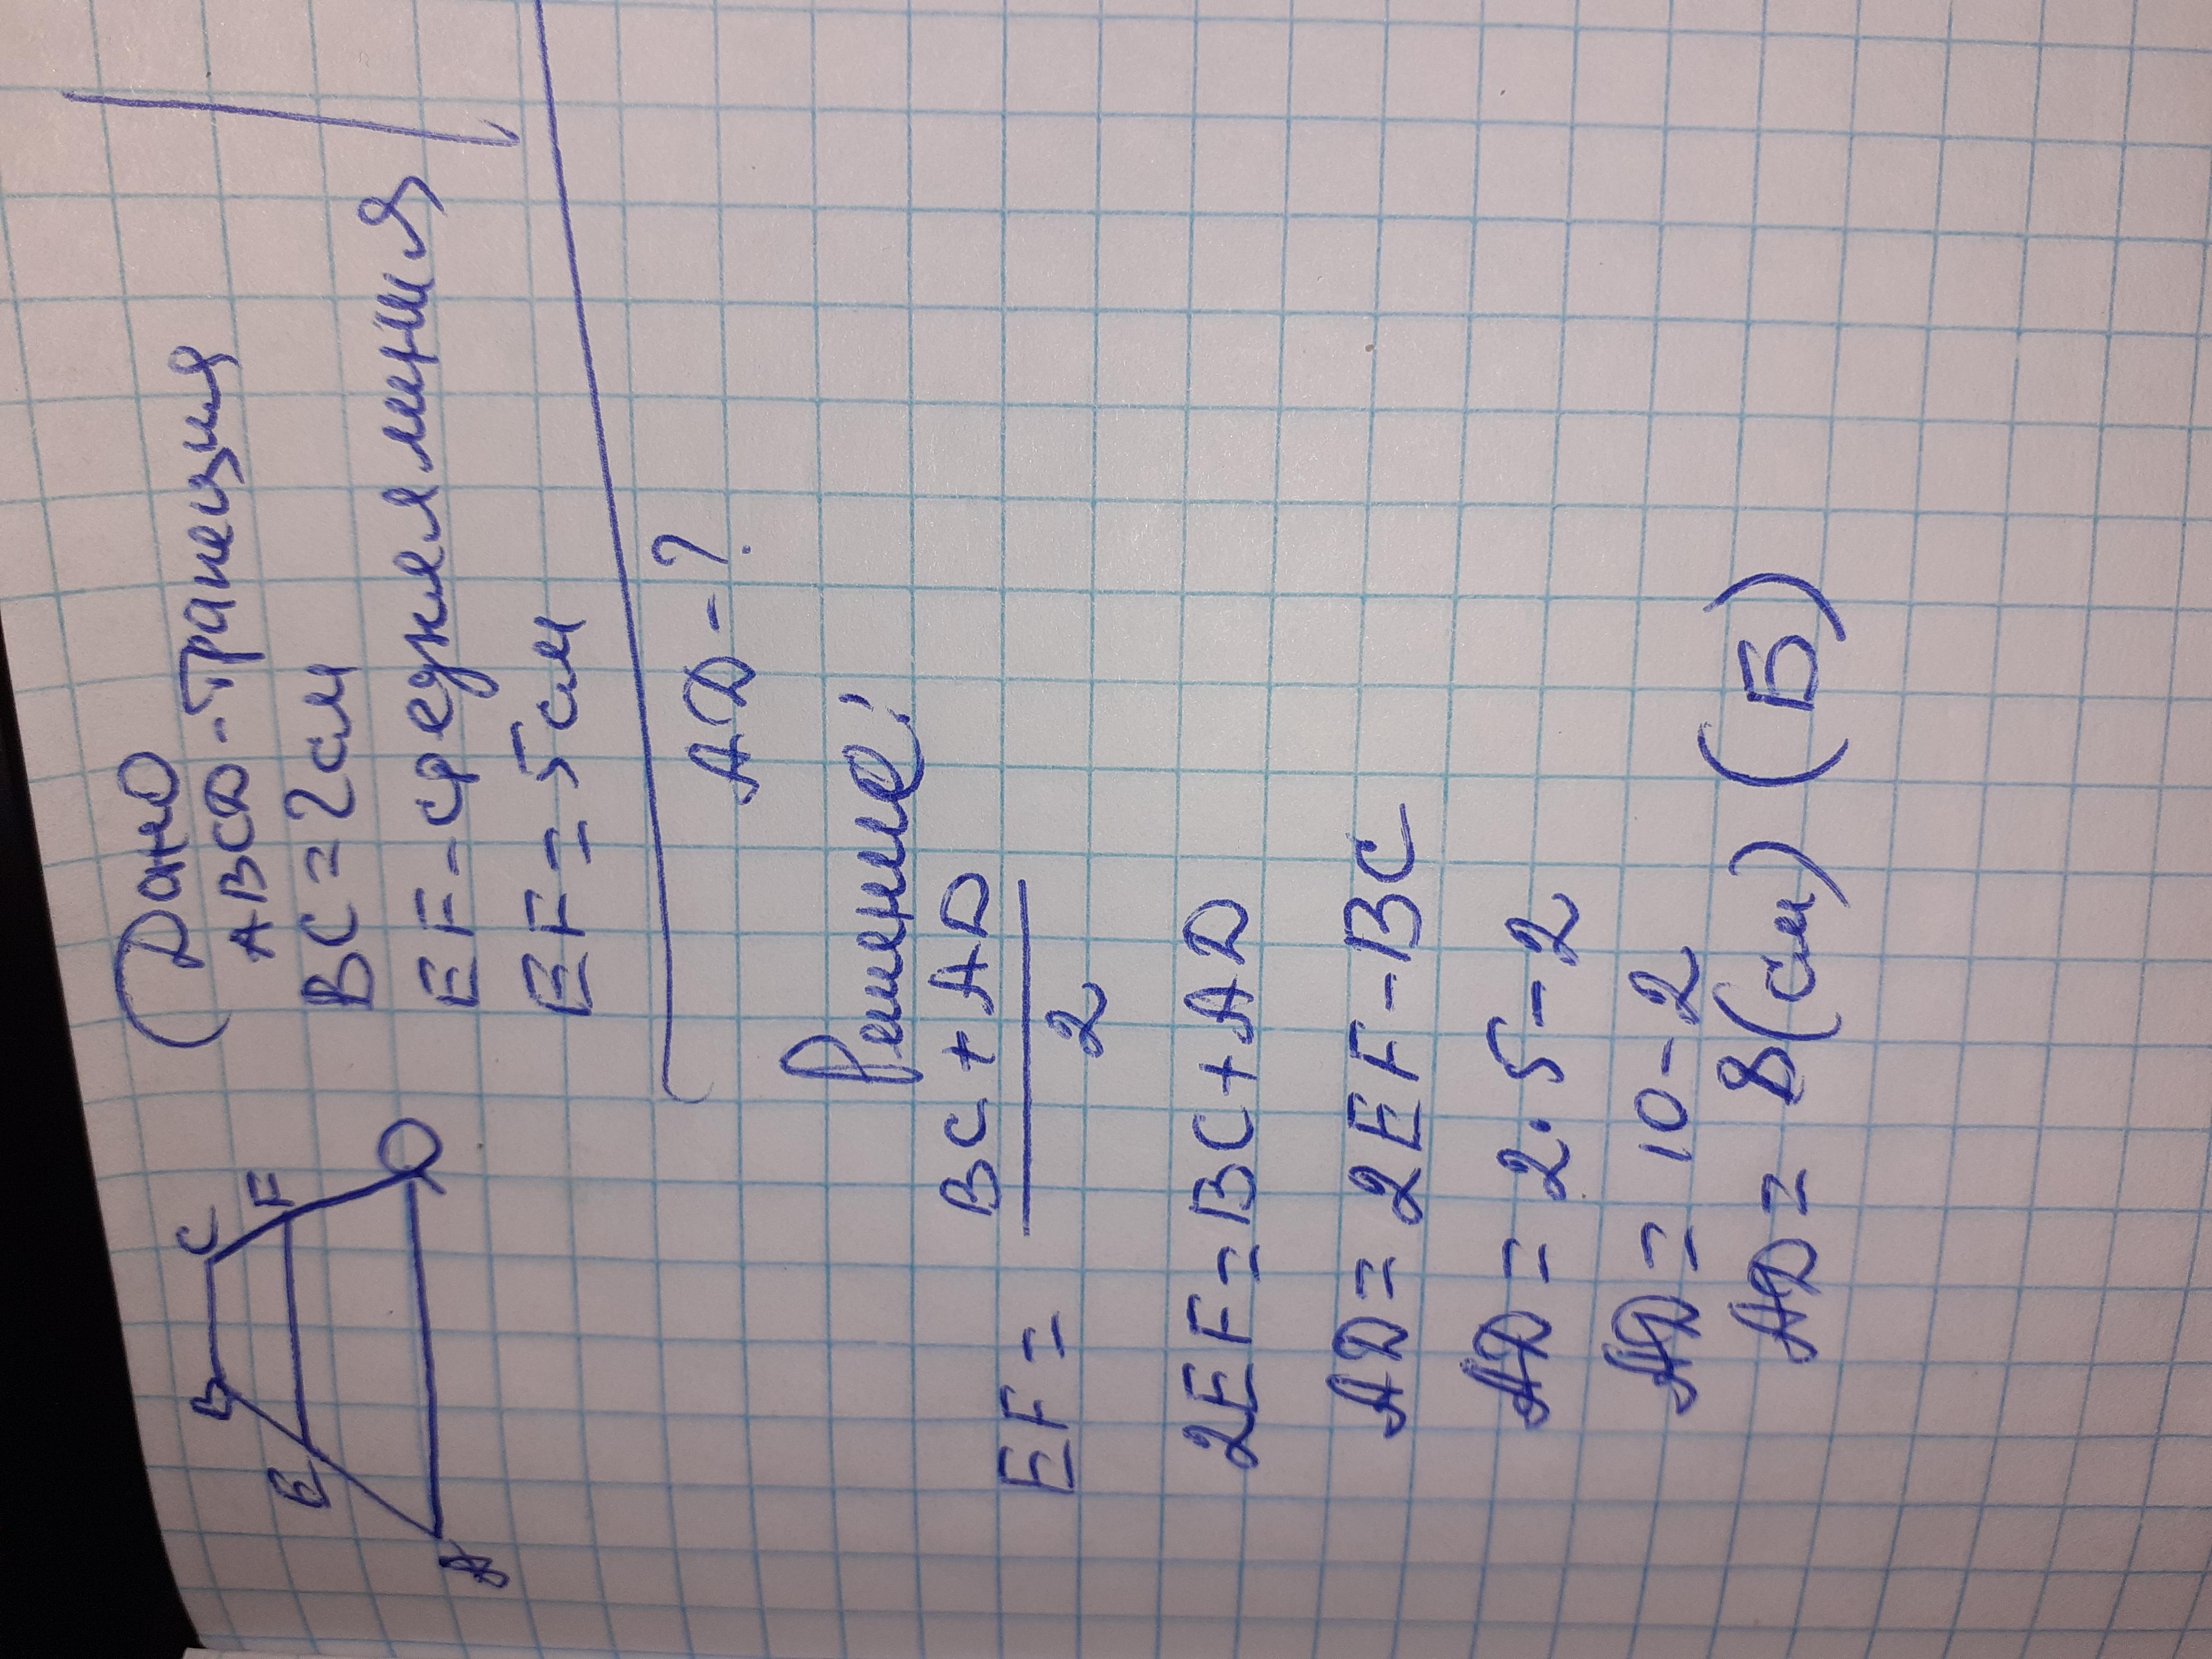 B C
E F
A D
Дано
ABCD - трапеция
BC = 2см
EF - средняя линия
EF = 5см
AD - ?
Решение:
EF = BC + AD / 2
2EF = BC + AD
AD = 2EF - BC
AD = 2 · 5 - 2
AD = 10 - 2
AD = 8(см) (Б)